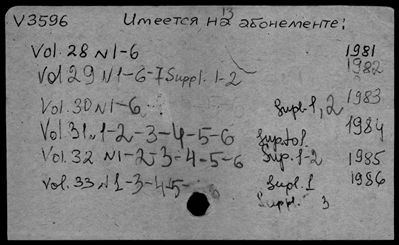 V3596 Имеется на 13 абонементе:
Vol. 28 N1-6 1981
Vol 29 N1-6-7 Suppl. 1-2 1982
Vol. 30 N1-6 Supl. 1, 2 1983
Vol. 31 N1-2-3-4-5-6 Sup. to 1. 1984
Vol. 32 N1-2-3-4-5-6 Sup. 1-2 1985
Vol. 33 N1-3-4-5-6 Supl. 1 1986
Suppl. 3